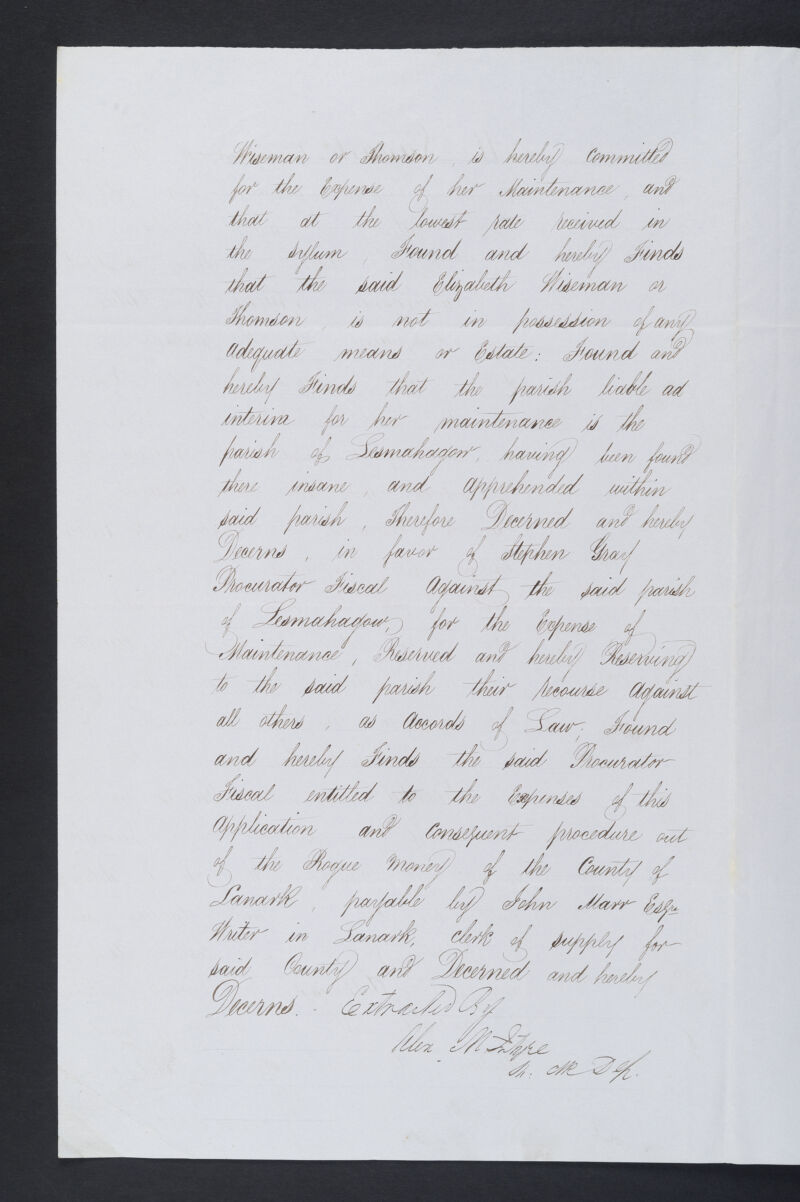 Wiseman or Thomson, is hereby Committed
for the Expense of her Maintenance, and
that at the lowest rate received in
the sylum, Found and hereby Finds
that the said Elizabeth Wiseman or
Thomson, is not in possession of any
Adequate means or Estate: Found and
hereby Finds that the parish liable ad
interim for her maintenance is the
parish of Lesmahagow, having been found
there insane, and apprehended within
said parish, Therefore Decerned and hereby
Decerns, in favor of Stephen Gray
Procurator Fiscal Against the said parish
of Lesmahagow, for the Expense of
Maintenance, Reserved and hereby Reserving
to the said parish their recourse Against
all others, as Accords of Law; Found
and hereby Finds the said Procurator
Fiscal entitled to the Expenses of this
Application and Consequent procedure out
of the Rogue Money of the County of
Lanark, payable by John Marr Esqr
Writer in Lanark, Clerk of supply for
said County and Decerned and hereby
Decerns. Extracted By
Alex McIntyre